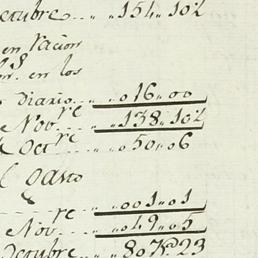 ctubre „ „ 154„ 10½
en racion
en los
Diario „ „ 016„ 00
Nov.re „ „ 138„ 10½
Oct.re „ „ 050„ 06
Gasto
„ „ 001„ 01
Nov.re „ „ 049„ 05
Octubre „ 80 23